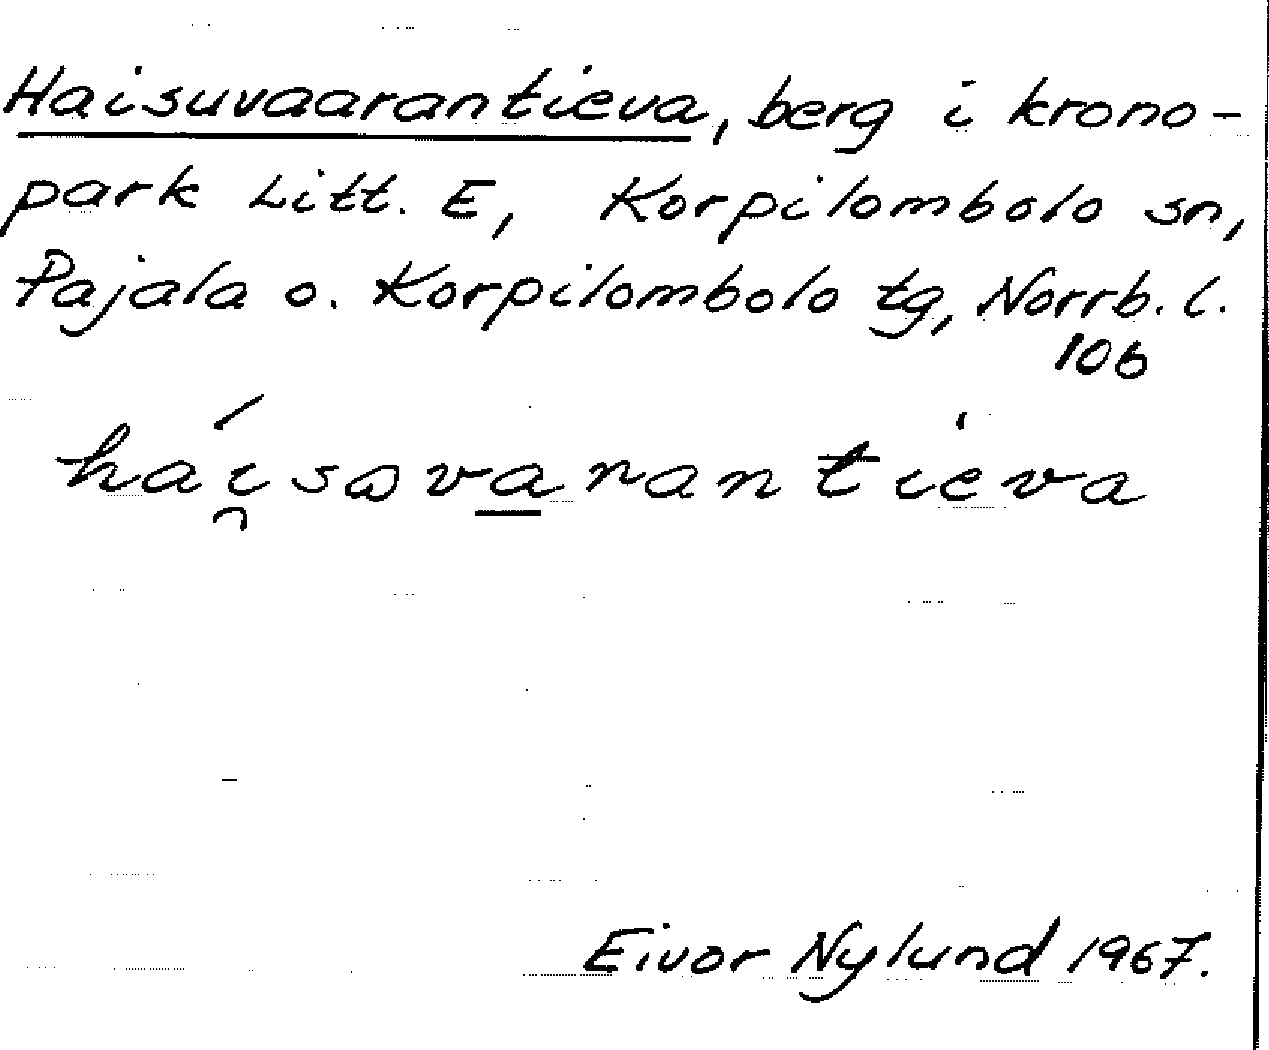 Haisuvaarantieva, berg i krono-
park Litt. E, Korpilombolo sn,
Pajala o. Korpilombolo tg, Norrb. l.
106
hái̯sɷva̲rantìeva
Eivor Nylund 1967.